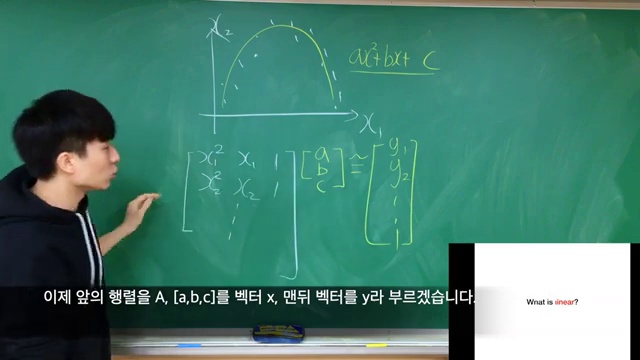 x₂
ax²+bx+c
x₁
x₁² x₁ 1
x₂² x₂ 1
a
b
c
≅
y₁
y₂
이제 앞의 행렬을 A, [a,b,c]를 벡터 x, 맨뒤 벡터를 y라 부르겠습니다.
What is linear?